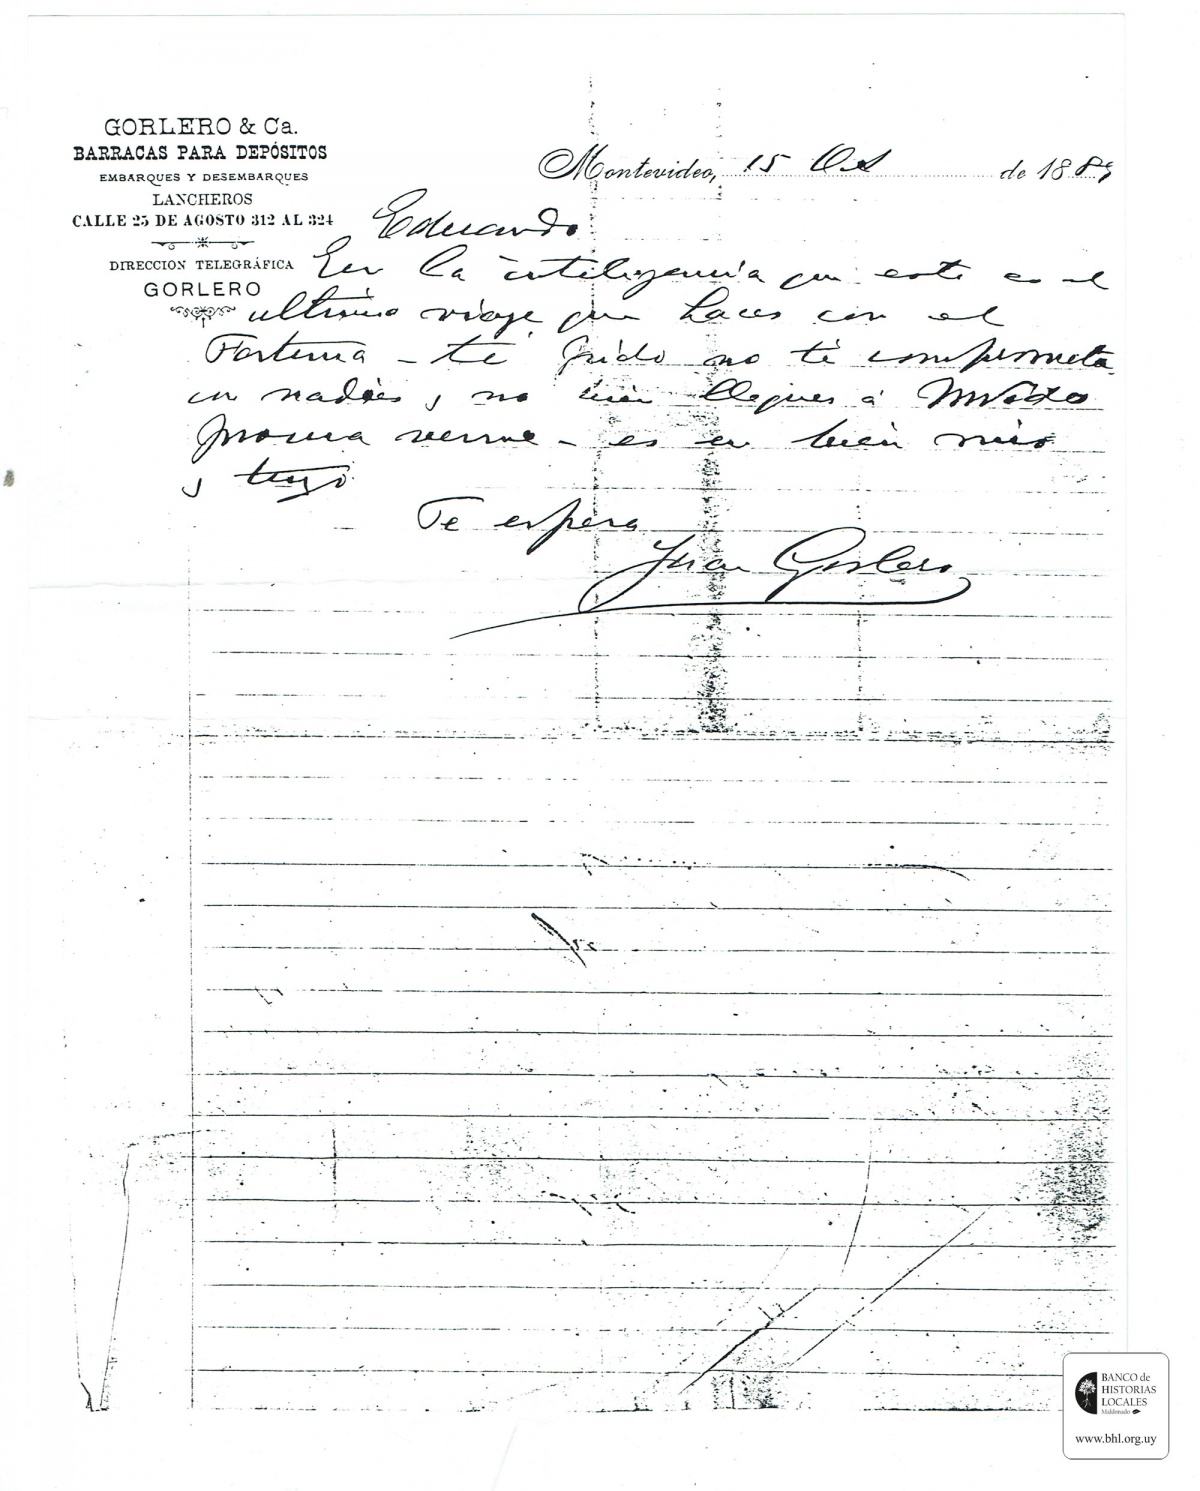 GORLERO & Ca.
BARRACAS PARA DEPÓSITOS
EMBARQUES Y DESEMBARQUES
LANCHEROS
CALLE 25 DE AGOSTO 312 AL 324
DIRECCIÓN TELEGRÁFICA
GORLERO
Montevideo, 15 Oct de 1889
Eduardo
En la inteligencia que este es el
ultimo viaje que haces con el
Fortuna - te pido no te comprometa
con nadies, y no bien llegues á Mvideo
procura verme - es en bien mio
y tuyo.
Te espera
Juan Gorlero
BANCO de
HISTORIAS
LOCALES
Maldonado
www.bhl.org.uy